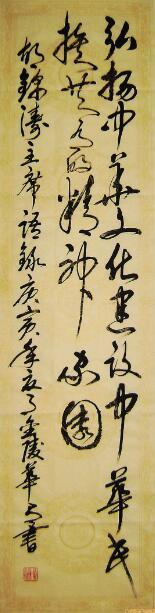 弘扬中华文化建设中华民
族共有的精神家园
胡锦涛主席语录庚寅年夏月金陵华文书